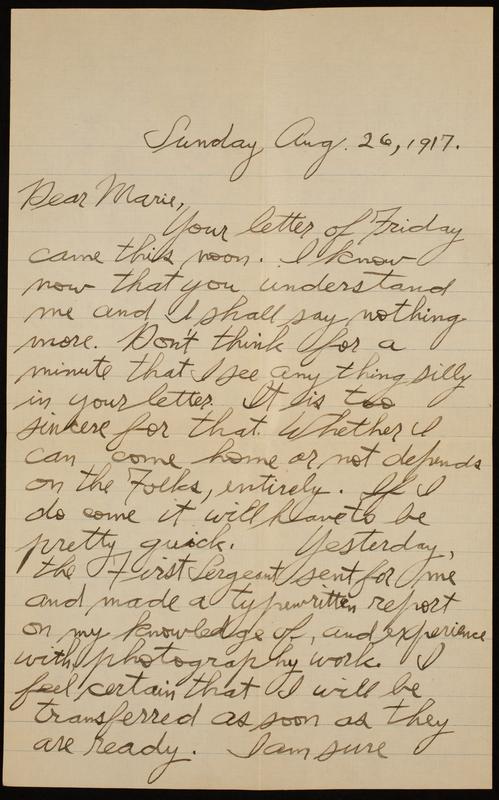 Sunday Aug. 26, 1917.
Dear Marie,
Your letter of Friday
came this noon. I know
now that you understand
me and I shall say nothing
more. Don't think for a
minute that I see any thing silly
in your letter. It is too
sincere for that. Whether I
can come home or not depends
on the Folks, entirely. If I
do come it will have to be
pretty quick. Yesterday,
the First Sergeant sent for me
and made a typewritten report
on my knowledge of, and experience
with photography work. I
feel certain that I will be
transferred as soon as they
are ready. I am sure